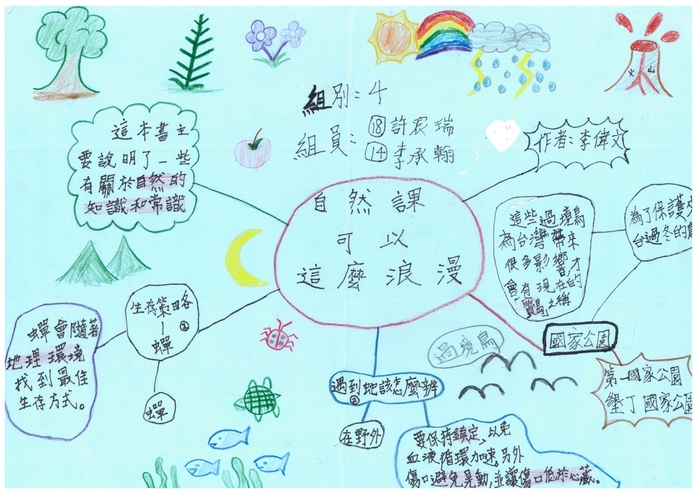 組別：4
組員：⑱許宸瑞
⑭李承翰
作者：李偉文
火山
這本書主
要說明了一些
有關於自然的
知識和常識
自然課
可以
這麼浪漫
這些過境鳥
為台灣帶來
很多影響才
會有現在的
之稱
為了保護
台過冬的
國家公園
第一國家公園
墾丁國家公園
過境鳥
生存策略
②
蟬
蟬
蟬會隨著
地理環境
找到最佳
生存方式。
遇到地該怎麼辦
②
在野外
要保持鎮定，以免
血液循環加速，另外
傷口避免晃動，並讓傷口低於心臟。